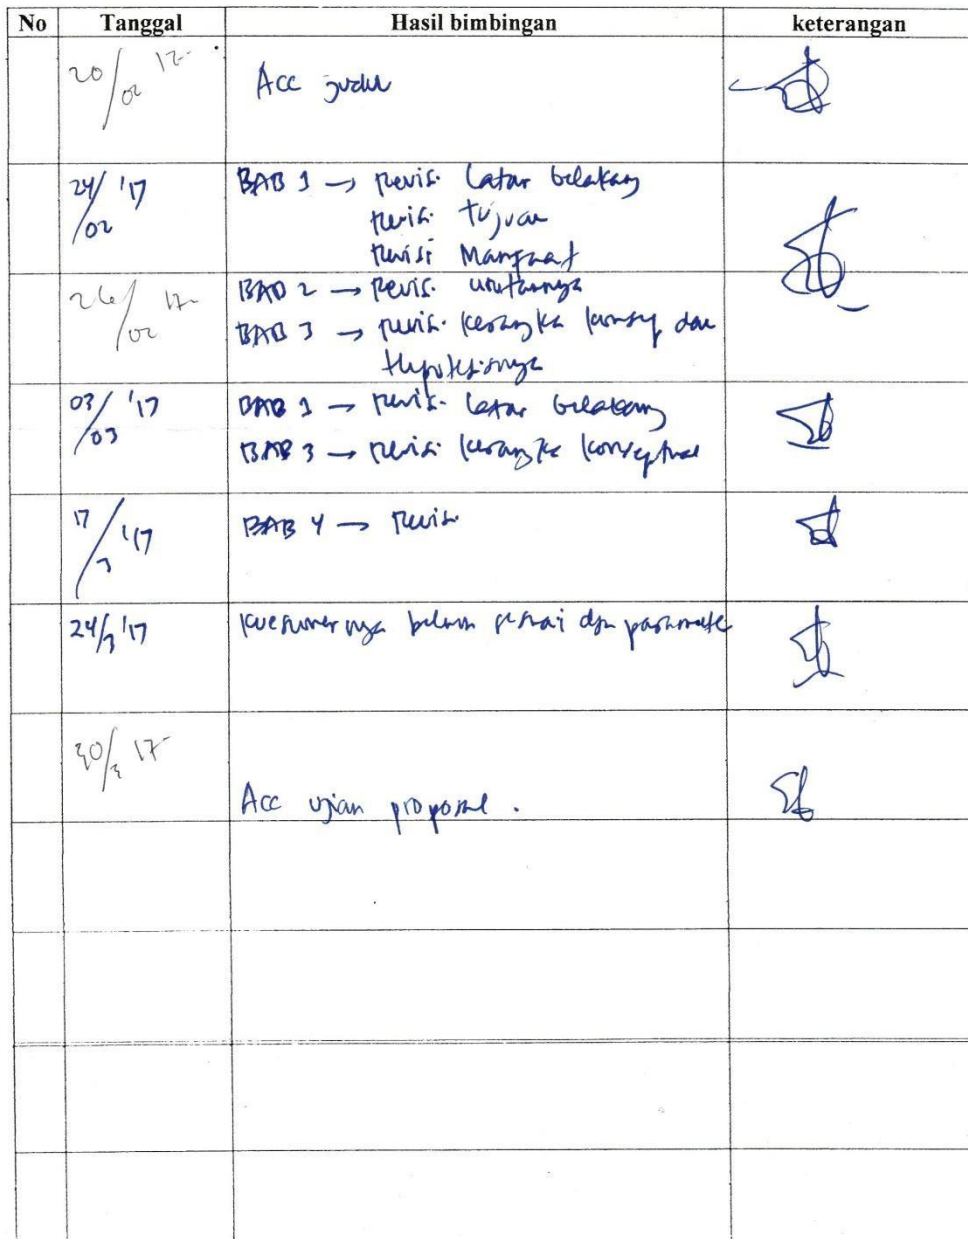 No Tanggal Hasil bimbingan keterangan
20/02 17- Acc judul
24/02 '17 BAB 1 → Revisi Latar belakang
Revisi Tujuan
Revisi Manfaat
26/02 17- BAB 2 → Revisi urutannya
BAB 3 → Revisi kerangka konsep dan
Hipotesisnya
03/03 '17 BAB 1 → Revisi Latar belakang
BAB 3 → Revisi kerangka konseptual
17/3 '17 BAB 4 → Revisi
24/3 '17 kuesionernya belum sesuai dgn parameter
30/3 17-
Acc ujian proposal .